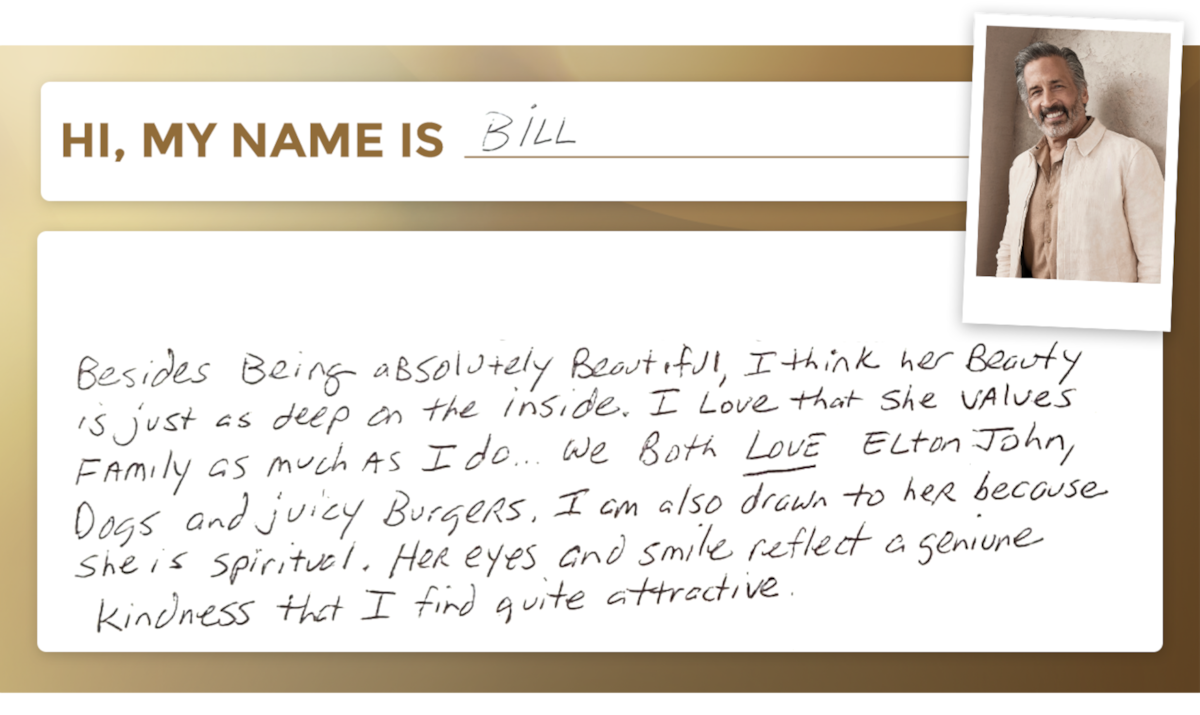 HI, MY NAME IS BILL
Besides Being absolutely Beautiful, I think her Beauty
is just as deep on the inside. I Love that she values
Family as much as I do... We Both LOVE Elton John,
Dogs and juicy Burgers. I am also drawn to her because
she is spiritual. Her eyes and smile reflect a geniune
kindness that I find quite attractive.